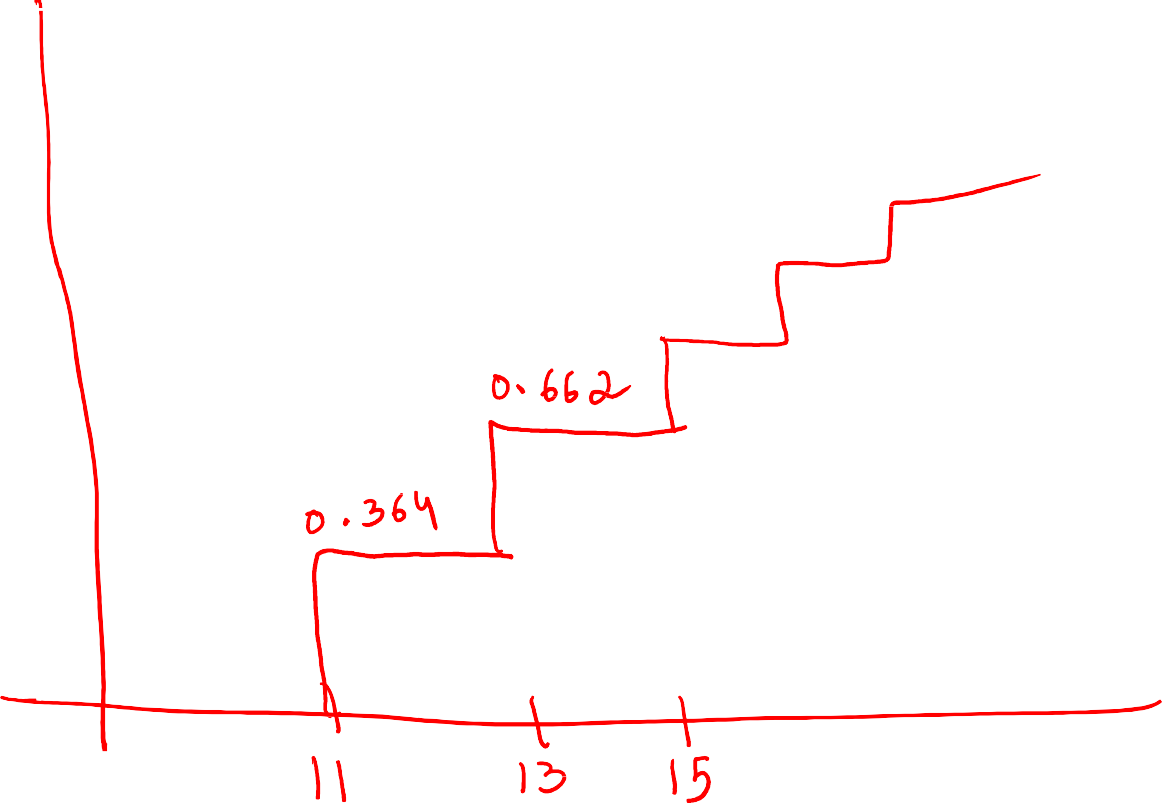 0.662
0.364
11 13 15